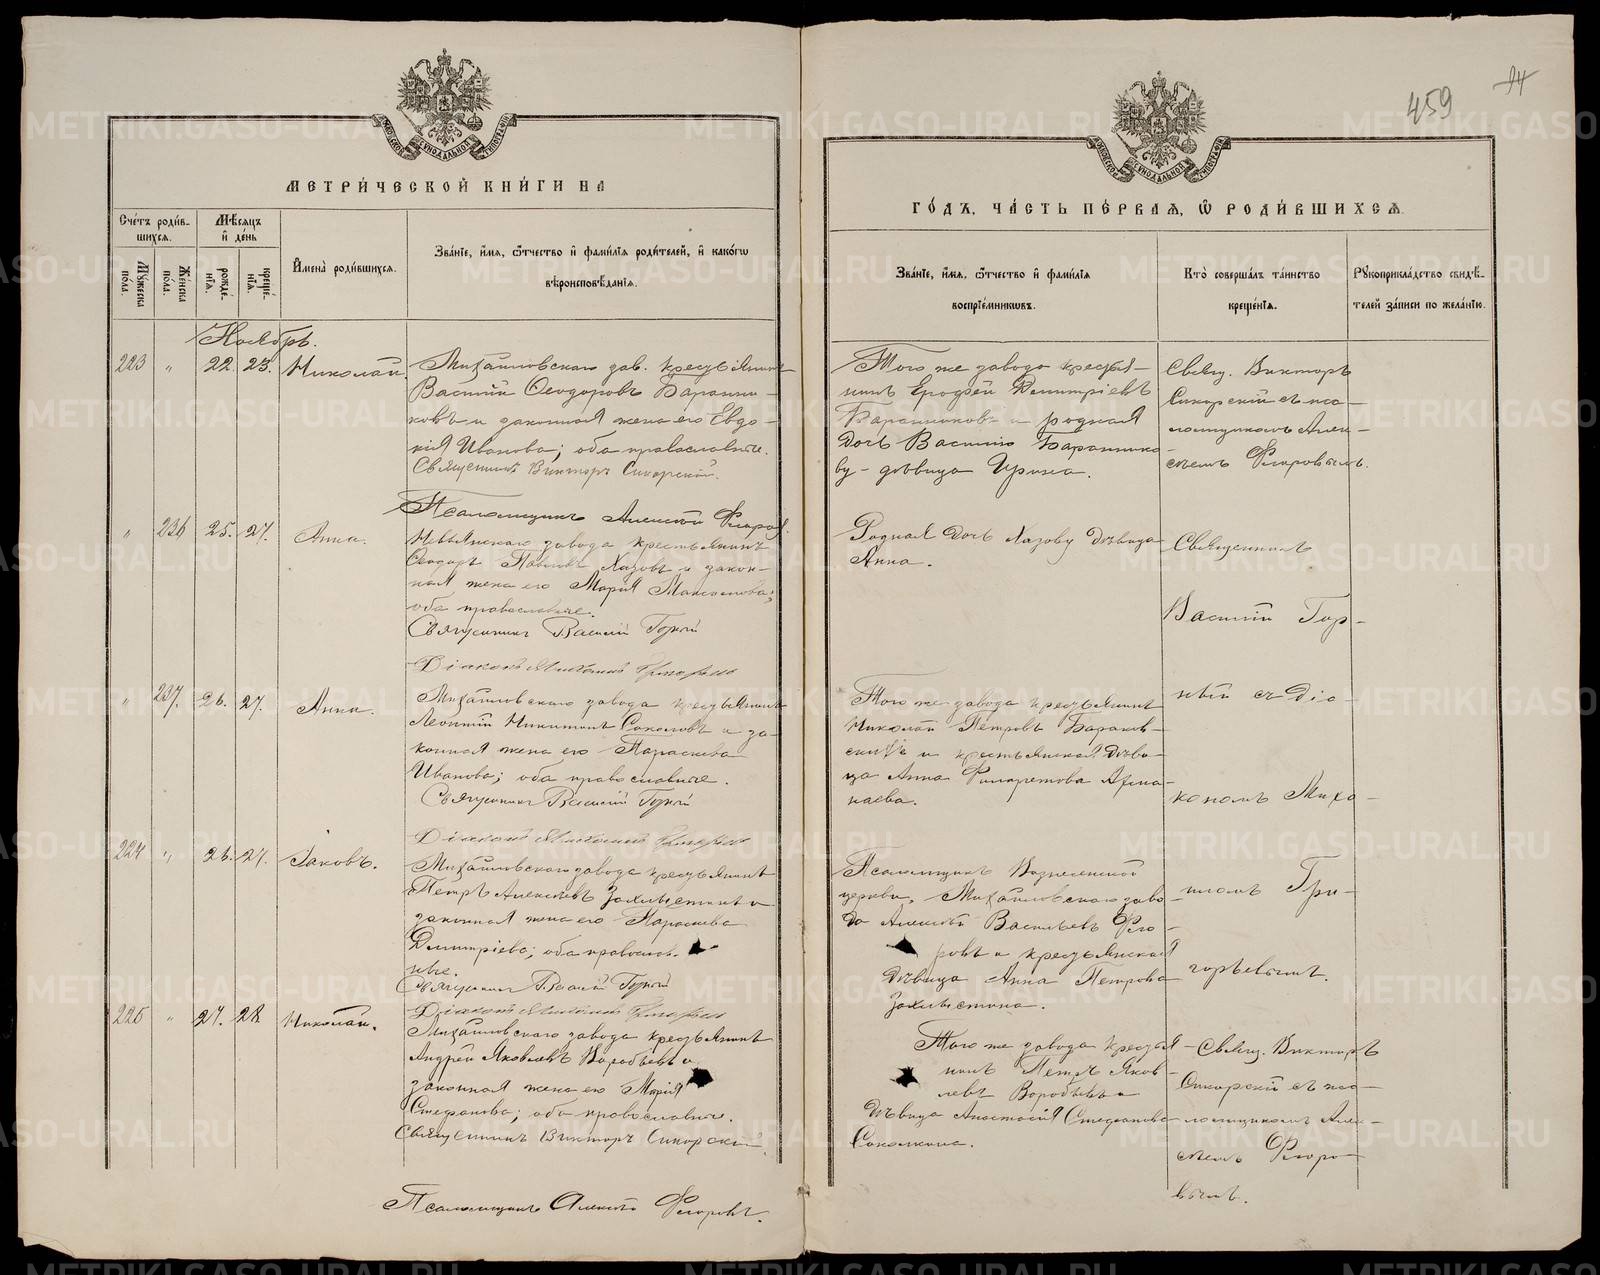 459
94
МЕТРИ́ЧЕСКОЙ КНИ́ГИ НА
Сче́тъ роди́в-
шихся.
Мѣ́сяцъ
и҆ де́нь
И҆мена̀ роди́вшихся.
Зва́нїе, и҆́мя, ѻ҆́тчество и҆ фами́лїѧ роди́телей, и҆ како́гѡ
вѣроисповѣ́данїѧ.
Мꙋ́жеска по́ла.
Же́нска по́ла.
рожде́-нїѧ.
креще́-нїѧ.
Ноябрь.
223 " 22. 23. Николай.
Михайловскаго зав. крестьянинъ
Василій Ѳеодоровъ Баранни-
ковъ и законная жена его Евдо-
кія Иванова; оба православные.
Священникъ Викторъ Сикорскій.
Псаломщикъ Алексѣй Флоров.
" 236 25. 27. Анна.
Невьянскаго завода крестьянинъ
Ѳеодоръ Павловъ Хазовъ и закон-
ная жена его Марія Максимова;
оба православные.
Священникъ Василій Горный
Діаконъ Михаилъ Григорьев
" 237. 26. 27. Анна.
Михайловскаго завода крестьянинъ
Леонтій Никитинъ Соколовъ и за-
конная жена его Параскева
Иванова; оба православные.
Священникъ Василій Горный
Діаконъ Михаилъ Григорьев
224 " 26. 27. Іаковъ.
Михайловскаго завода крестьянинъ
Петръ Алексѣевъ Захлыстинъ и
законная жена его Параскева
Димитріева; оба правосла-
вные.
Священникъ Василій Горный
Діаконъ Михаилъ Григорьев
225 " 27. 28. Николай.
Михайловскаго завода крестьянинъ
Андрей Яковлевъ Воробьевъ и
законная жена его Марія
Стефанова; оба православные.
Священникъ Викторъ Сикорскій
Псаломщикъ Алексѣй Флоровъ.
ГО́ДЪ, ЧА́СТЬ ПЕ́РВАЯ, Ѡ҆ РОДИ́ВШИХСЯ.
Зва́нїе, и҆́мя, ѻ҆́тчество и҆ фами́лїѧ
воспрїе́мникѡвъ.
Кто̀ соверша́лъ та́инство
креще́нїѧ.
Рꙋкоприкла́дство свидѣ́-
телей за́писи по жела́нїю.
Того же завода крестья-
нинъ Ерофей Димитріевъ
Баранниковъ и родная
дочь Василію Баранико-
ву - дѣвица Ирина.
Свящ. Викторъ
Сикорскій съ пса-
ломщикомъ Алек-
сѣемъ Флоровымъ.
Родная дочь Хазову дѣвица
Анна.
Священникъ
Василій Гор-
ный съ діа-
кономъ Миха-
иломъ Гри-
горьевымъ.
Того же завода крестьянинъ
Николай Петровъ Баранов-
скихъ и крестьянская дѣви-
ца Анна Филаретова Афана-
наева.
Псаломщикъ Вознесенской
церкви, Михайловскаго заво-
да Алексѣй Васильевъ Фло-
ровъ и крестьянская
дѣвица Анна Петрова
Захлыстина.
Того же завода крестья-
нинъ Петръ Яков-
левъ Воробьевъ и
дѣвица Анастасія Стефанова
Соколкина.
Свящ. Викторъ
Сикорскій съ пса-
ломщикомъ Алек-
сѣемъ Флоро-
вымъ.
METRIKI.GASO-URAL.RU